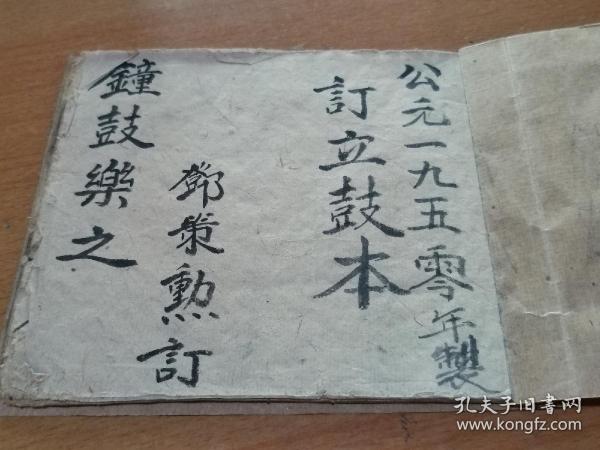 公元一九五零年製
訂立鼓本
鄧彙勲訂
鐘鼓樂之
孔夫子旧书网
www.kongfz.com